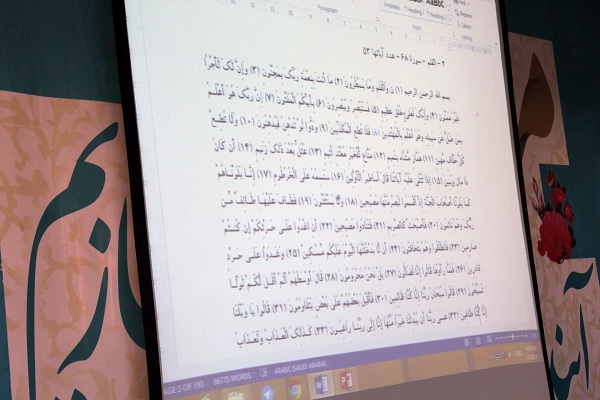 AaBbC
Paragraph
Styles
Editing
٢ - القلم - سورة ٦٨ - عدد آياتها ٥٣
بسم الله الرحمن الرحيم (١) ن والقلم وما يسطرون (٢) ما أنت بنعمة ربك بمجنون (٣) وإن لك لأجرا
غير ممنون (٤) وإنك لعلى خلق عظيم (٥) فستبصر ويبصرون (٦) بأيكم المفتون (٧) إن ربك هو أعلم
بمن ضل عن سبيله وهو أعلم بالمهتدين (٨) فلا تطع المكذبين (٩) ودوا لو تدهن فيدهنون (١٠) ولا تطع
كل حلاف مهين (١١) هماز مشاء بنميم (١٢) مناع للخير معتد أثيم (١٣) عتل بعد ذلك زنيم (١٤) أن كان
ذا مال وبنين (١٥) إذا تتلى عليه آياتنا قال أساطير الأولين (١٦) سنسمه على الخرطوم (١٧) إنا بلوناهم
كما بلونا أصحاب الجنة إذ أقسموا ليصرمنها مصبحين (١٨) ولا يستثنون (١٩) فطاف عليها طائف من
ربك وهم نائمون (٢٠) فأصبحت كالصريم (٢١) فتنادوا مصبحين (٢٢) أن اغدوا على حرثكم إن كنتم
صارمين (٢٣) فانطلقوا وهم يتخافتون (٢٤) أن لا يدخلنها اليوم عليكم مسكين (٢٥) وغدوا على حرد
قادرين (٢٦) فلما رأوها قالوا إنا لضالون (٢٧) بل نحن محرومون (٢٨) قال أوسطهم ألم أقل لكم لولا
تسبحون (٢٩) قالوا سبحان ربنا إنا كنا ظالمين (٣٠) فأقبل بعضهم على بعض يتلاومون (٣١) قالوا يا ويلنا
إنا كنا طاغين (٣٢) عسى ربنا أن يبدلنا خيرا منها إنا إلى ربنا راغبون (٣٣) كذلك العذاب ولعذاب
OF 193 66775 WORDS ARABIC (SAUDI ARABIA)
ENG